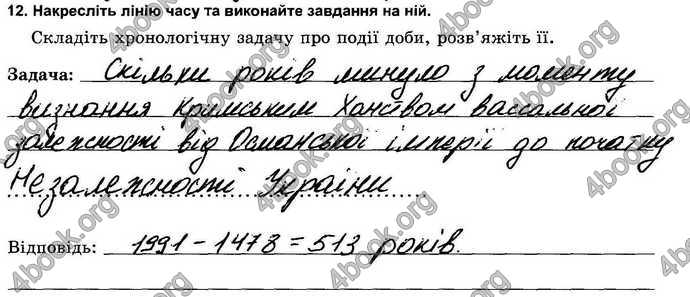 12. Накресліть лінію часу та виконайте завдання на ній.
Складіть хронологічну задачу про події доби, розв'яжіть її.
Задача: Скільки років минуло з моменту
визнання Кримським Ханством васальної
залежності від Османської імперії до початку
Незалежності України
Відповідь: 1991 – 1478 = 513 років.